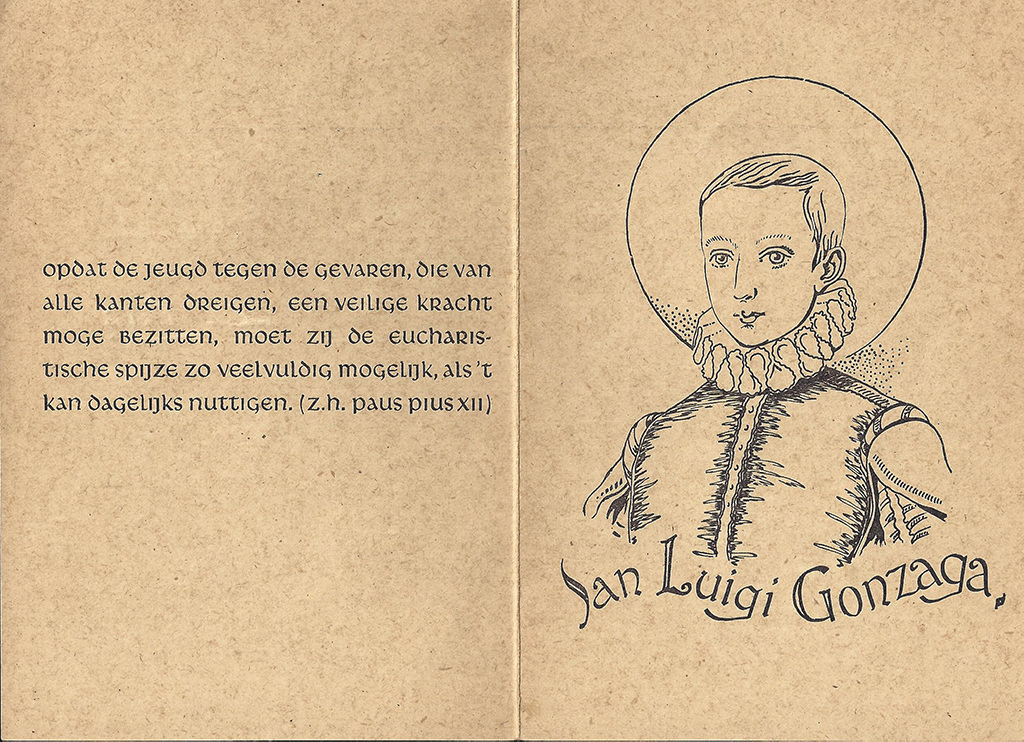 opdat de jeugd tegen de gevaren, die van
alle kanten dreigen, een veilige kracht
moge bezitten, moet zij de eucharis-
tische spijze zo veelvuldig mogelijk, als 't
kan dagelijks nuttigen. (z.h. paus pius xii)
San Luigi Gonzaga.